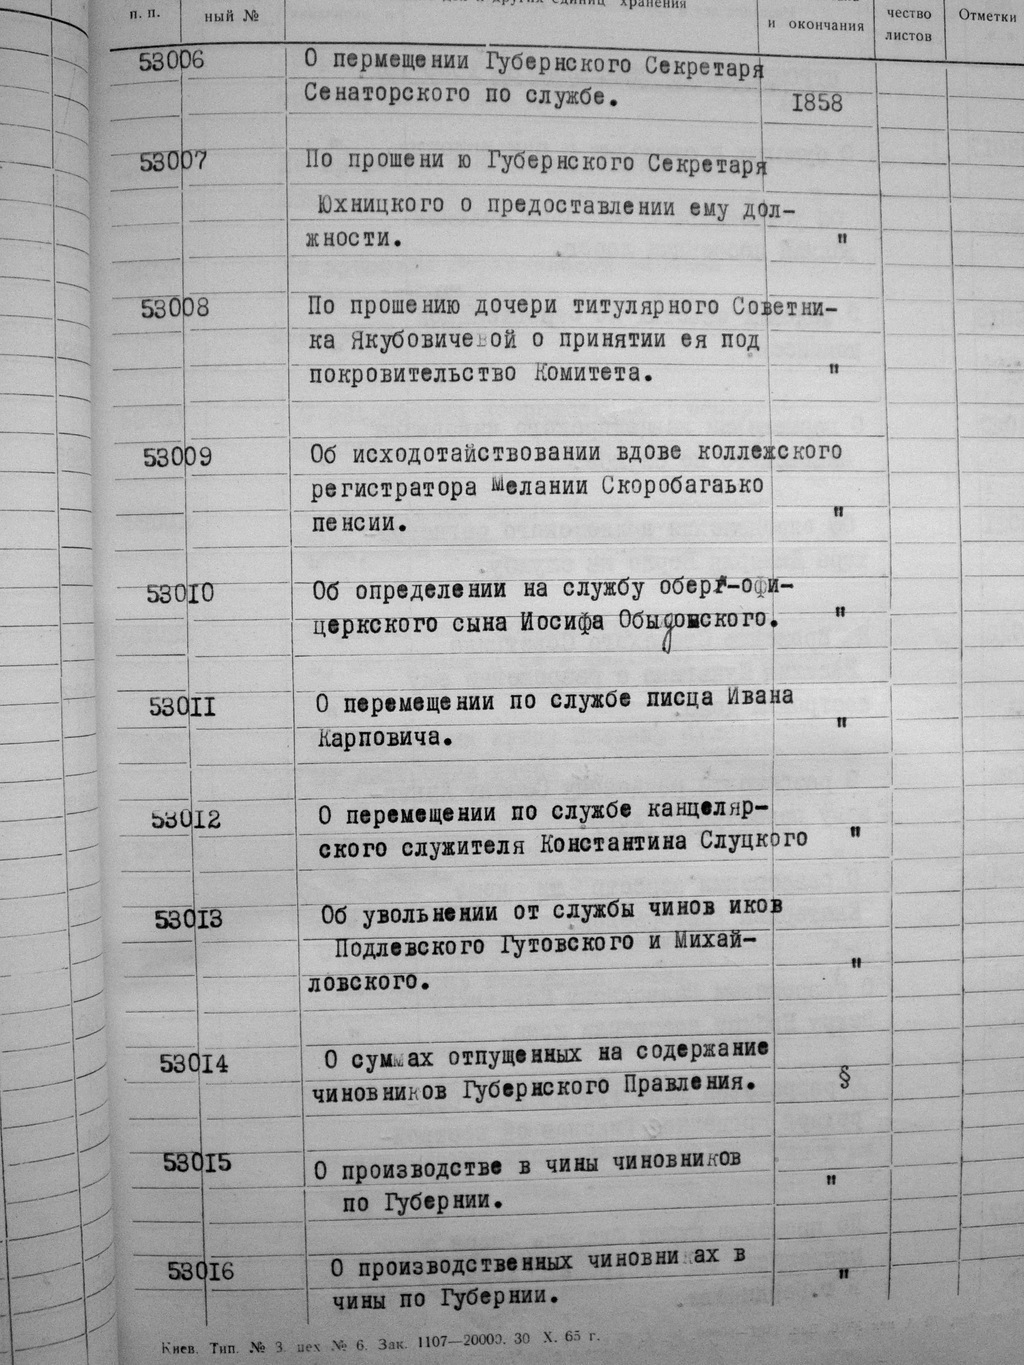 п. п.
ный №
других единиц хранения
и окончания
чество
листов
Отметки
53006 О пермещении Губернского Секретаря
Сенаторского по службе. 1858
53007 По прошени ю Губернского Секретаря
Юхницкого о предоставлении ему дол-
жности. "
53008 По прошению дочери титулярного Советни-
ка Якубовичевой о принятии ея под
покровительство Комитета. "
53009 Об исходотайствовании вдове коллежского
регистратора Мелании Скоробагаько
пенсии. "
53010 Об определении на службу обер-офи-
церкского сына Иосифа "
53011 О перемещении по службе писца Ивана
Карповича. "
53012 О перемещении по службе канцеляр-
ского служителя Константина Слуцкого "
53013 Об увольнении от службы чинов иков
Подлевского Гутовского и Михай-
ловского. "
53014 О суммах отпущенных на содержание
чиновников Губернского Правления. §
53015 О производстве в чины чиновников
по Губернии. "
53016 О производственных чиновни ах в
чины по Губернии. "
Киев. Тип. № 3 цех № 6. Зак. 1107—20000. 30 X. 65 г.